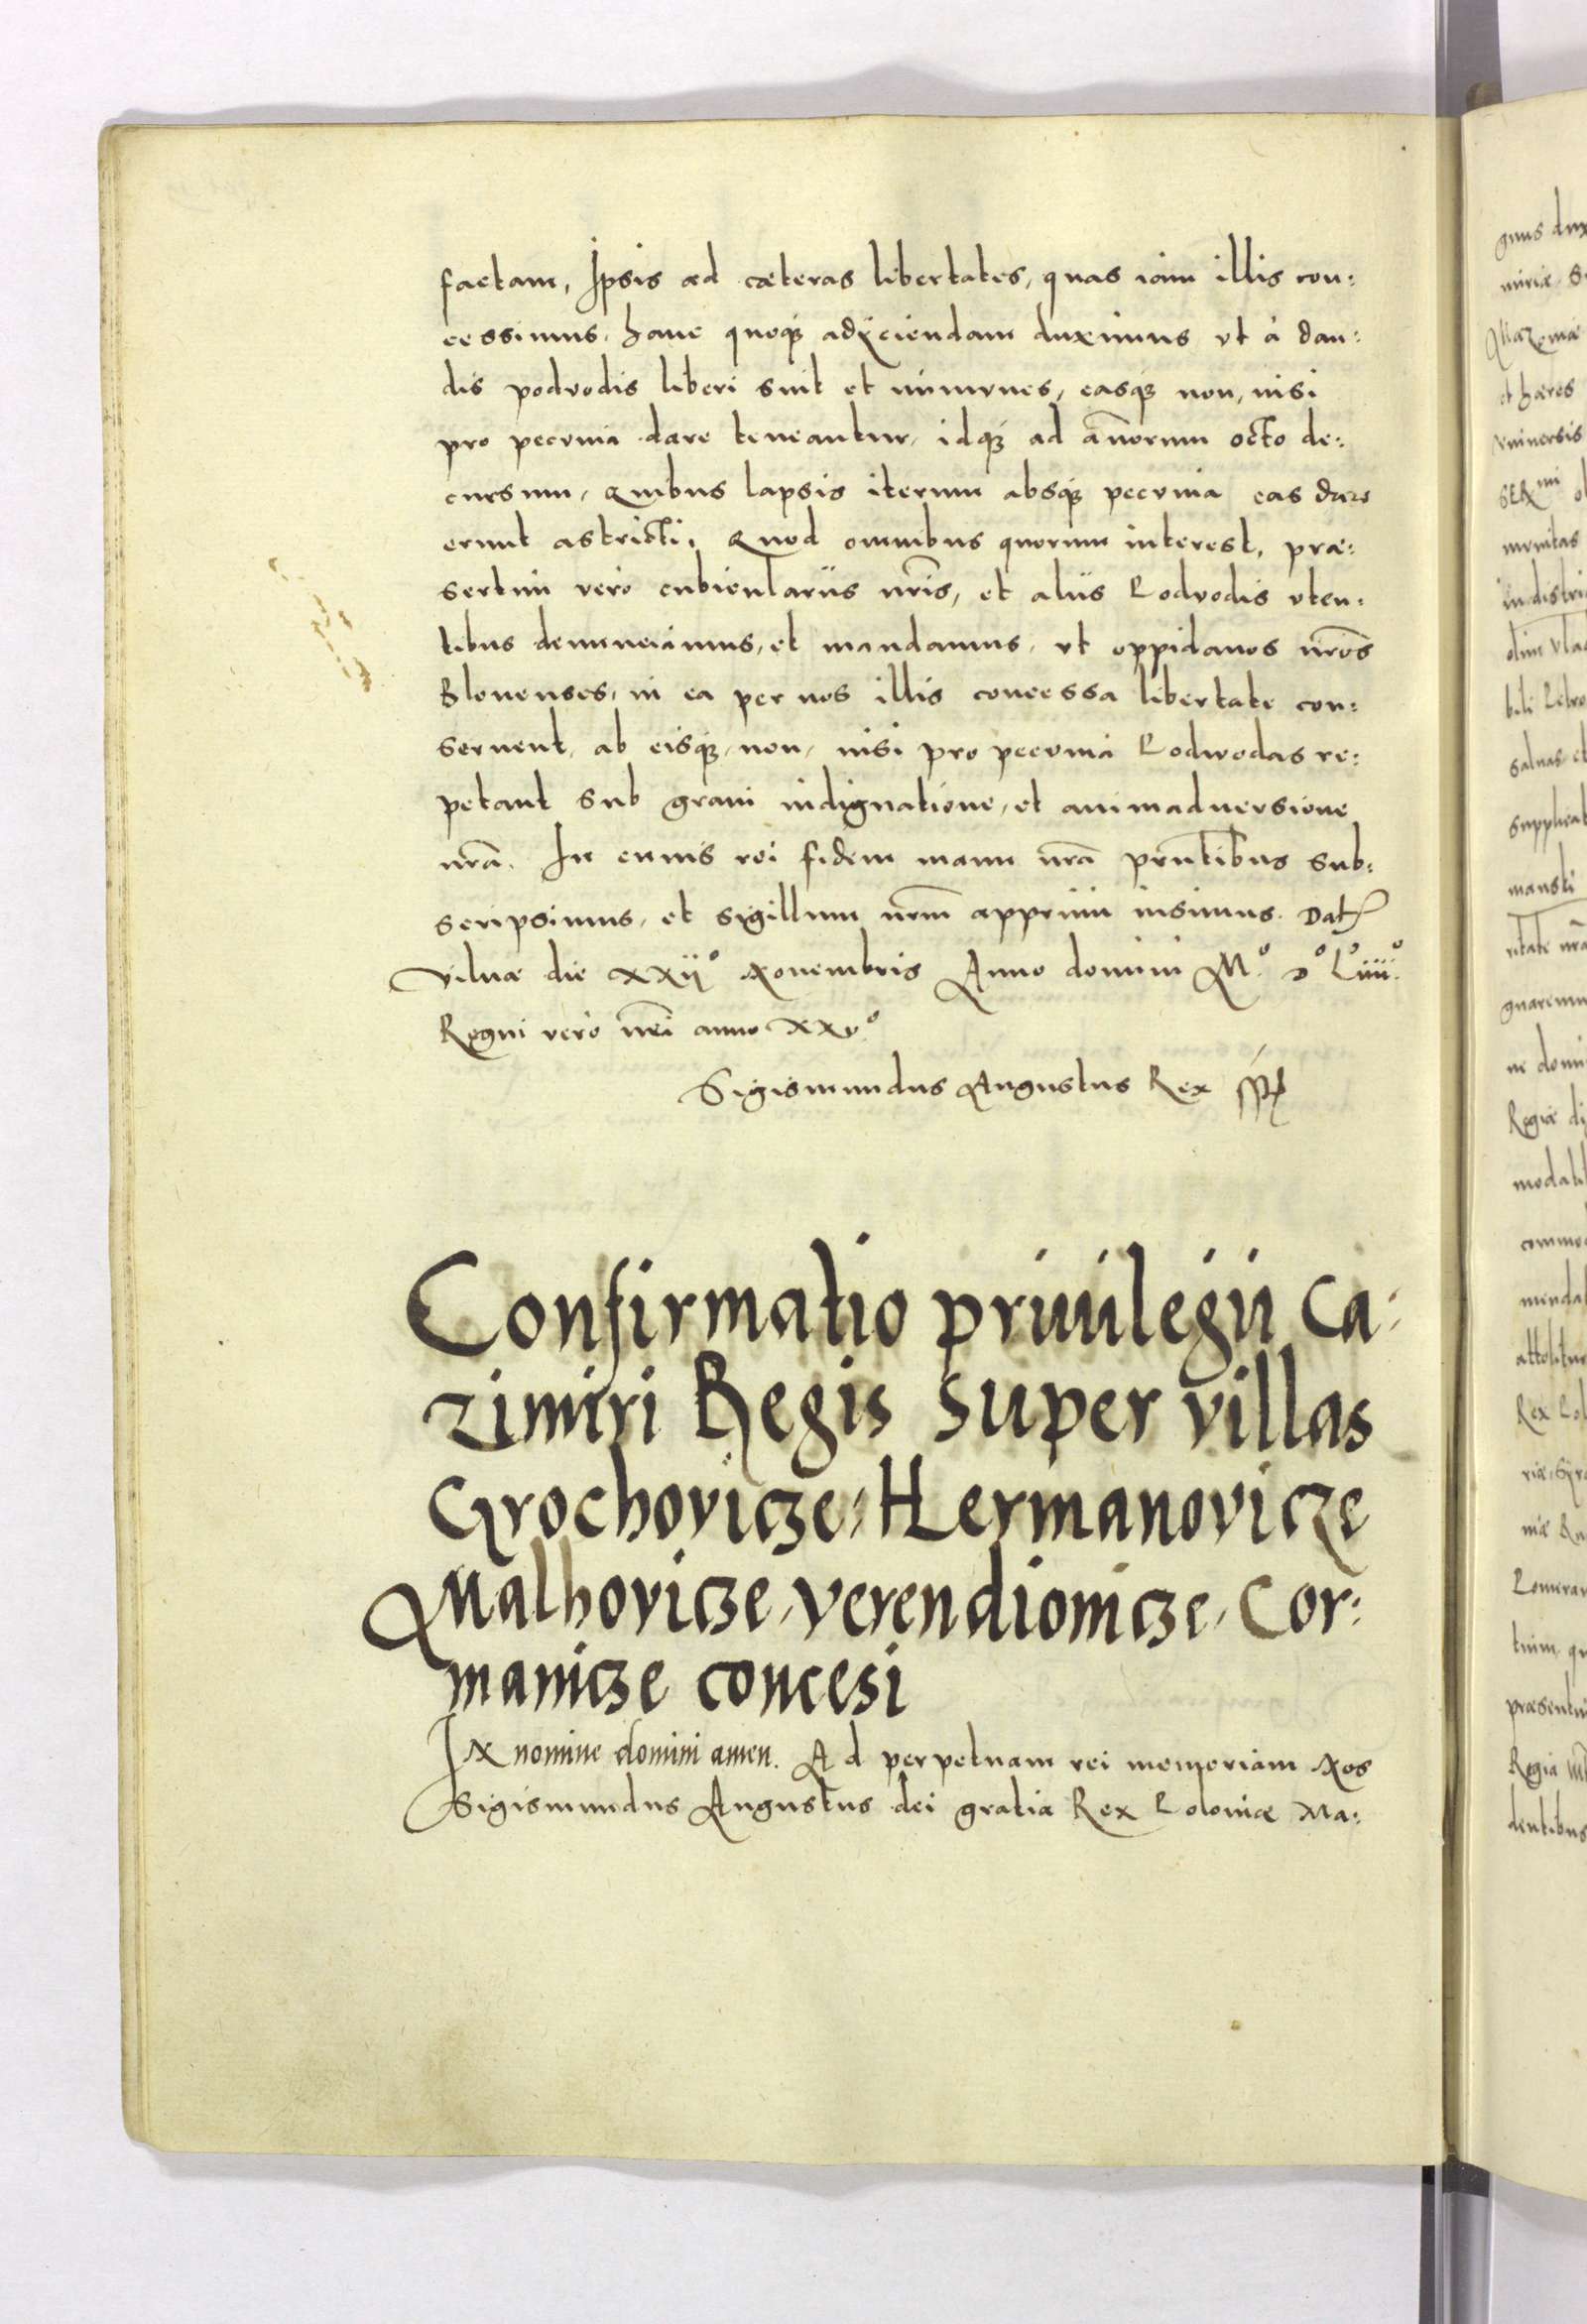 factam, Ipsis ad cæteras libertates, quas iam illis con:
cessimus, hanc quoq; adÿciendam duximus vt à dan:
dis podvodis liberi sint et immunes, easq; non, nisi
pro pecunia dare teneantur, idq; ad añorum octo de:
cursum, Quibus lapsis iterum absq; pecunia eas dare
erunt astricti. Quod omnibus quorum interest, præ:
sertim vero cubiculariis nr̃is, et aliis Podvodis vten:
tibus denunciamus, et mandamus, vt oppidanos nr̃os
Blonenses, in ea per nos illis concessa libertate con:
seruent, ab eisq; non, nisi pro pecunia Podwodas re:
petant sub graui indignatione, et animaduersione
nr̃a. In cuius rei fidem manu nr̃a pr̃ntibus sub:
scripsimus, et sigillum nr̃m apprimi iusimus. Dat
Vilnæ die XXij° Nouembris Anno domini M.° D° L°iiii.°
Regni vero nr̃i anno XXv.°
Sigismundus Augustus Rex sspt
Confirmatio priuilegii Ca:
zimiri Regis super villas
Grochovicze, Hermanovicze
Malhovicze, Verendiouicze, Cor:
manicze concesi
IN nomine domini amen. Ad perpetuam rei memoriam Nos
Sigismundus Augustus dei gratia Rex Poloniæ Ma:
gnus dux
et hæres
vniuersis